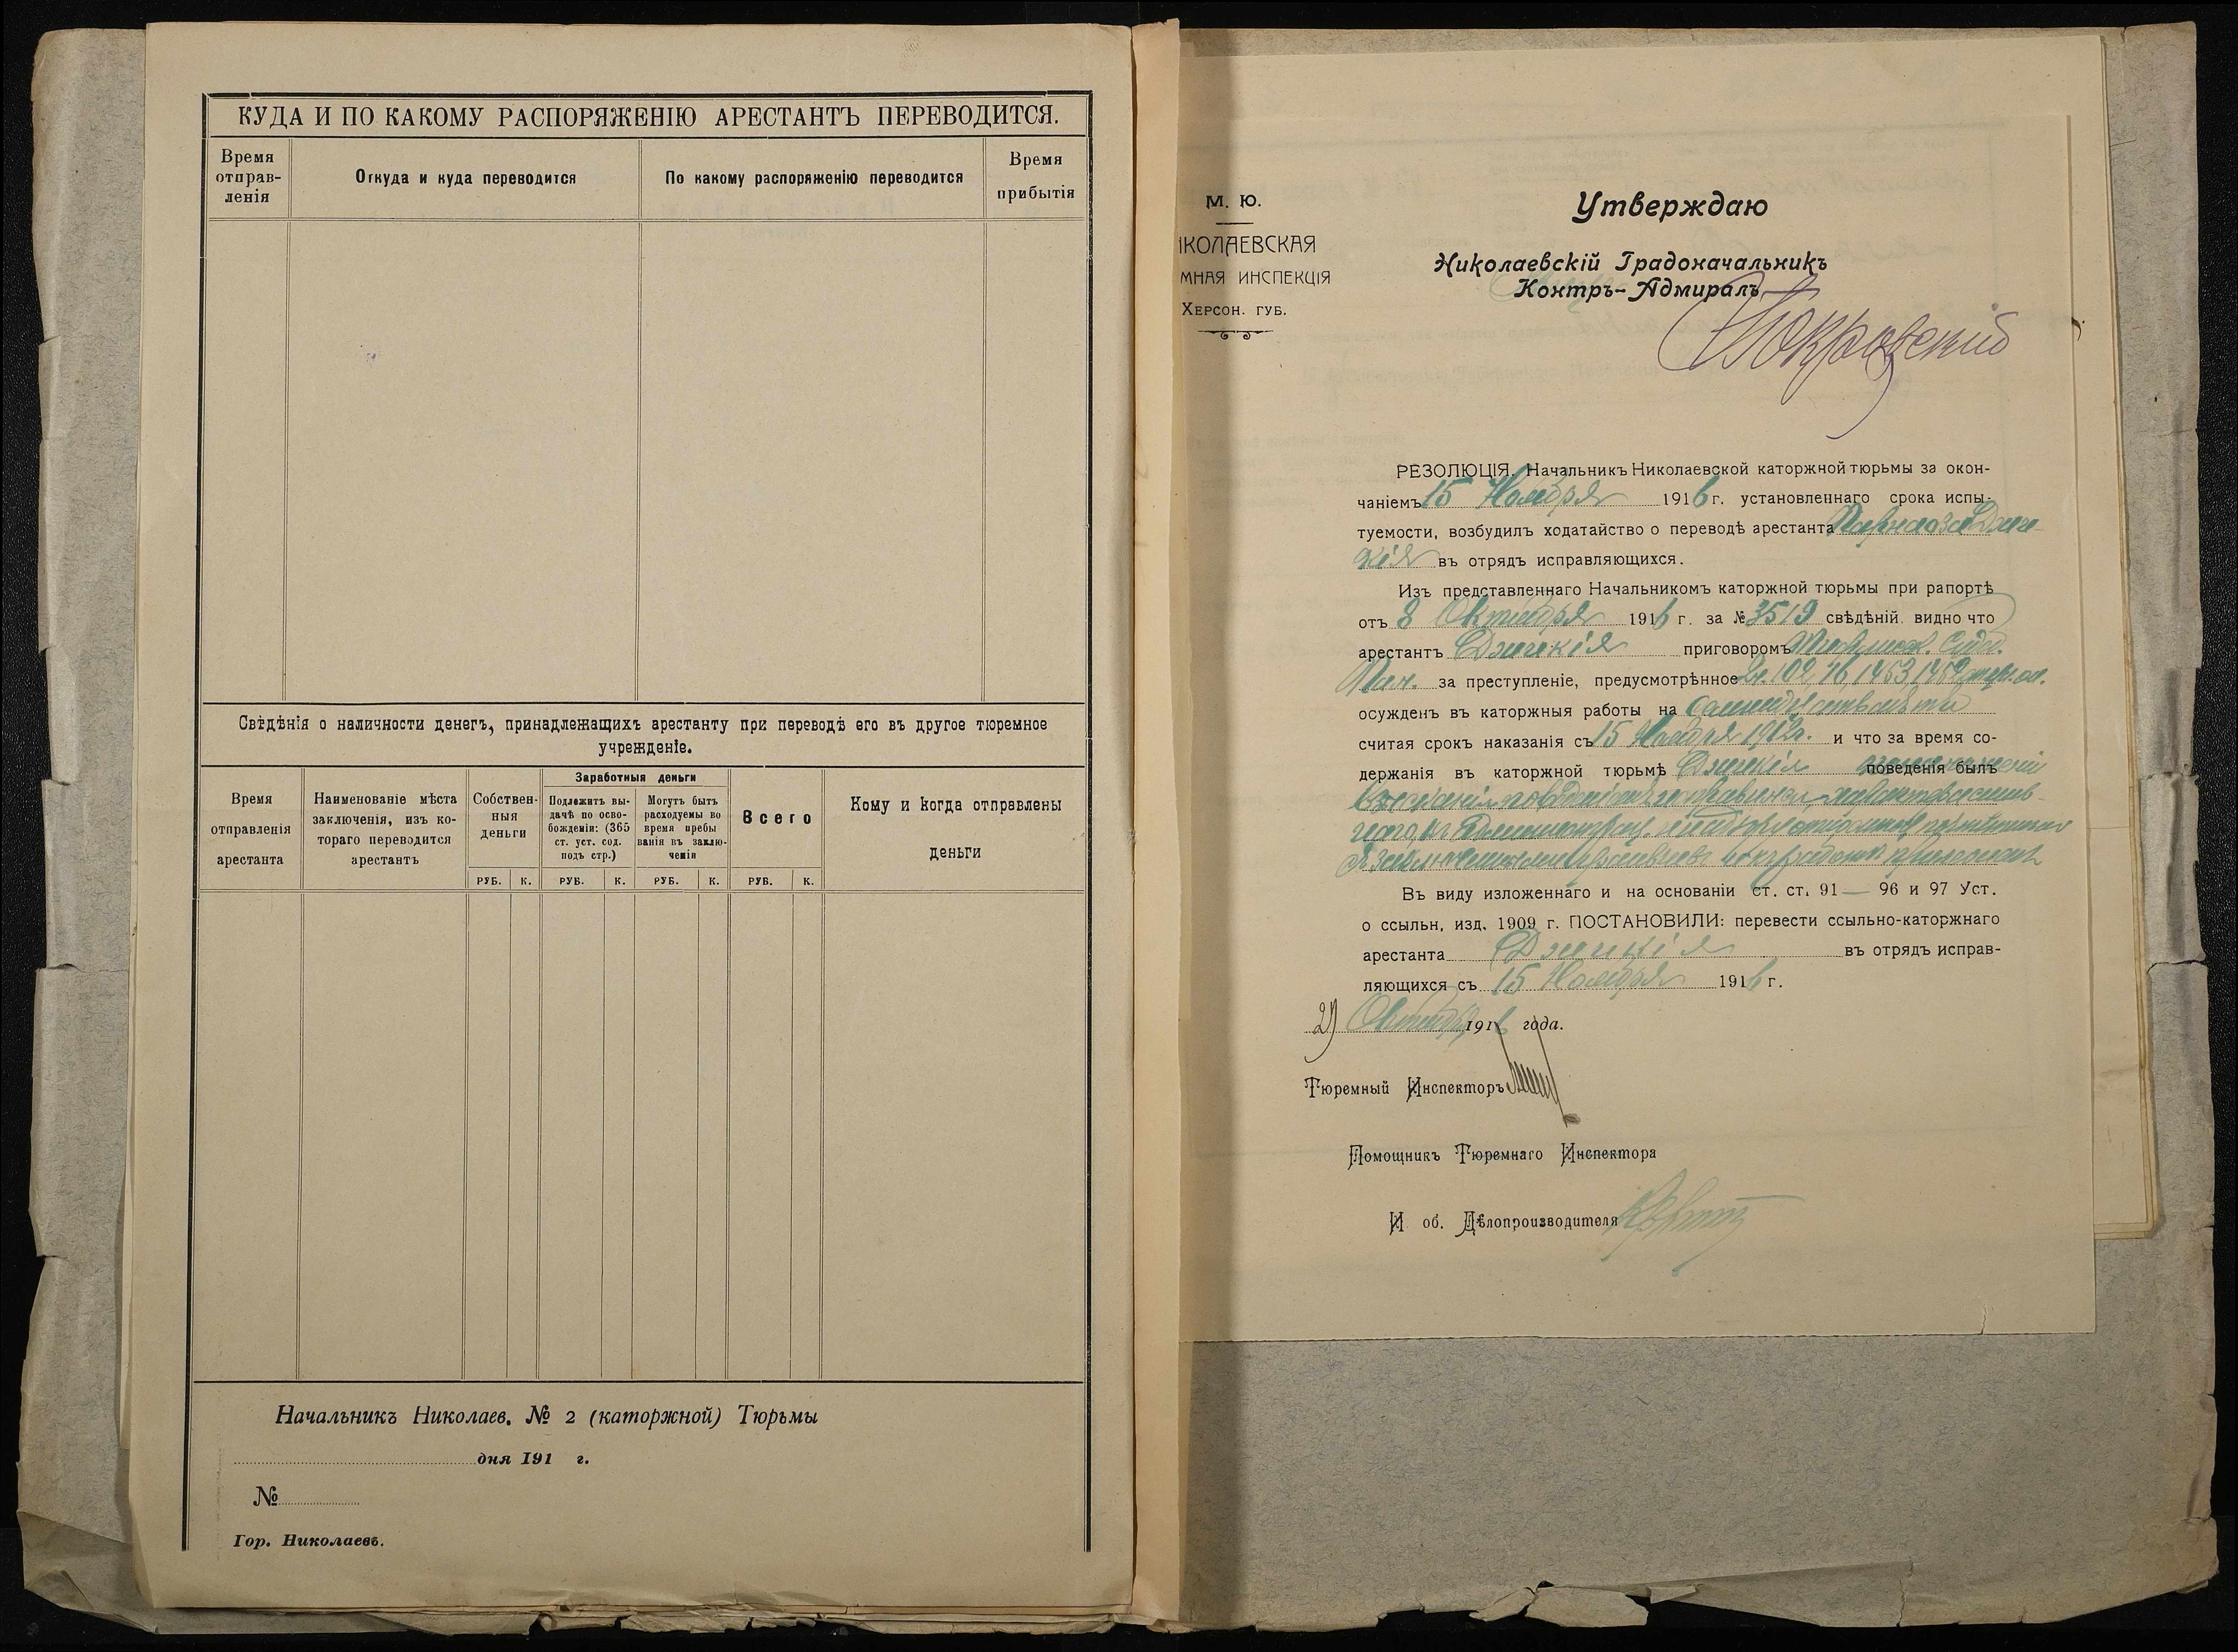 КУДА И ПО КАКОМУ РАСПОРЯЖЕНІЮ АРЕСТАНТЪ ПЕРЕВОДИТСЯ.
Время отправ-ленія
Откуда и куда переводится
По какому распоряженію переводится
Время прибытія
Свѣдѣнія о наличности денегъ, принадлежащихъ арестанту при переводѣ его въ другое тюремное
учрежденіе.
Время отправленія арестанта
Наименованіе мѣста заключенія, изъ ко-тораго переводится арестантъ
Собствен-ныя деньги
Заработныя деньги
Подлежитъ вы-дачѣ по осво-божденіи: (365 ст. уст. сод. подъ стр.)
Могутъ быть расходуемы во время пребы ванія въ заклю-ченіи
Всего
Кому и когда отправлены деньги
РУБ. К. РУБ. К. РУБ. К. РУБ. К.
Начальникъ Николаев. № 2 (каторжной) Тюрьмы
дня 191 г.
№
Гор. Николаевъ.
М. Ю.
ИКОЛАЕВСКАЯ
МНАЯ ИНСПЕКЦІЯ
ХЕРСОН. ГУБ.
Утверждаю
Николаевскій Градоначальникъ
Контръ-Адмиралъ
Покровскій
РЕЗОЛЮЦІЯ. Начальникъ Николаевской каторжной тюрьмы за окон-
чаніемъ 15 Ноября 1916 г. установленнаго срока испы-
туемости, возбудилъ ходатайство о переводѣ арестанта Парнаоза Джи-
кія въ отрядъ исправляющихся.
Изъ представленнаго Начальникомъ каторжной тюрьмы при рапортѣ
отъ 8 Октября 1916 г. за № 3519 свѣдѣній видно что
арестантъ Джикія приговоромъ Суд.
Пал. за преступленіе, предусмотрѣнное
осужденъ въ каторжныя работы на
считая срокъ наказанія съ 15 Ноября 1912 г. и что за время со-
держанія въ каторжной тюрьмѣ Джикія поведенія былъ
Въ виду изложеннаго и на основаніи ст. ст. 91 — 96 и 97 Уст.
о ссыльн, изд. 1909 г. ПОСТАНОВИЛИ: перевести ссыльно-каторжнаго
арестанта Джикія въ отрядъ исправ-
ляющихся съ 15 Ноября 1916 г.
Октября 1916 года.
Тюремный Инспекторъ
Помощникъ Тюремнаго Инспектора
И об. Дѣлопроизводителя